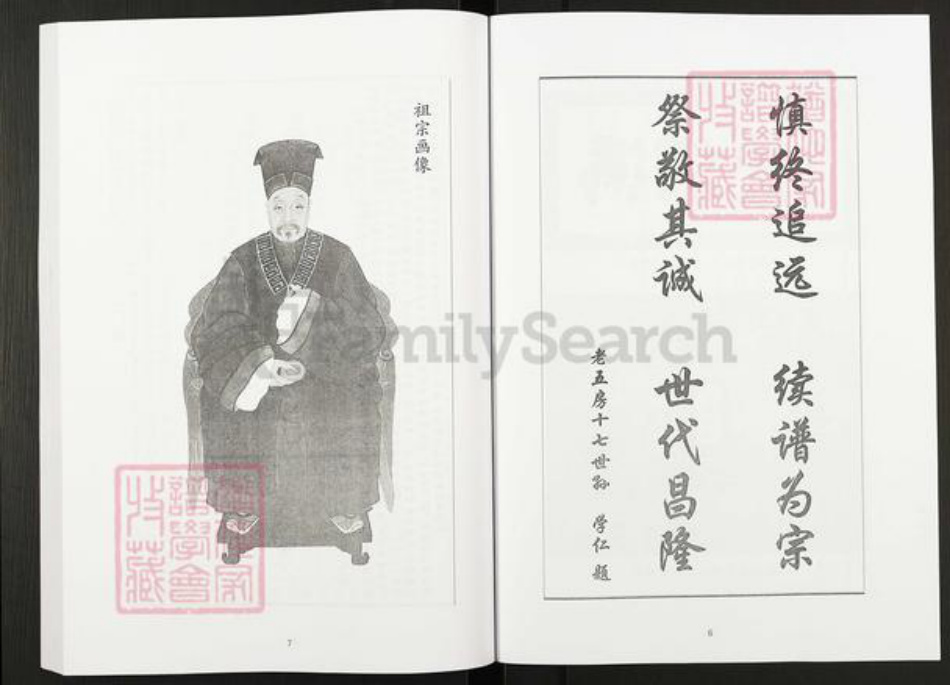 慎终追远 续谱为宗
祭敬其诚 世代昌隆
老五房十七世孙 学仁 题
6
祖宗画像
7
FamilySearch